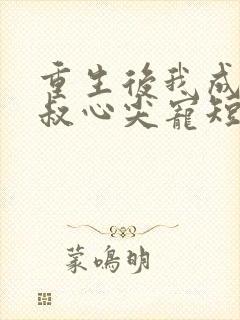 重生後我成
叔心尖寵短
蒙鳴明